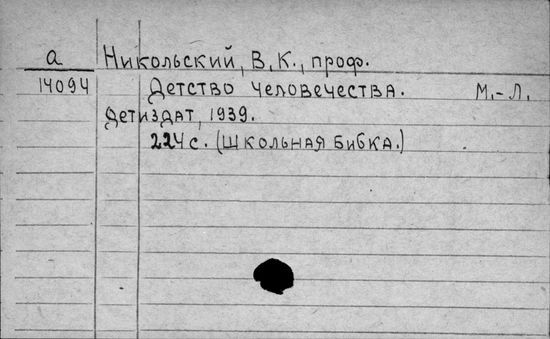 а Никольский, В. К., проф.
14094 Детство человечества. М.-Л.
Детиздат, 1939.
224с. (Школьная Бибка.)